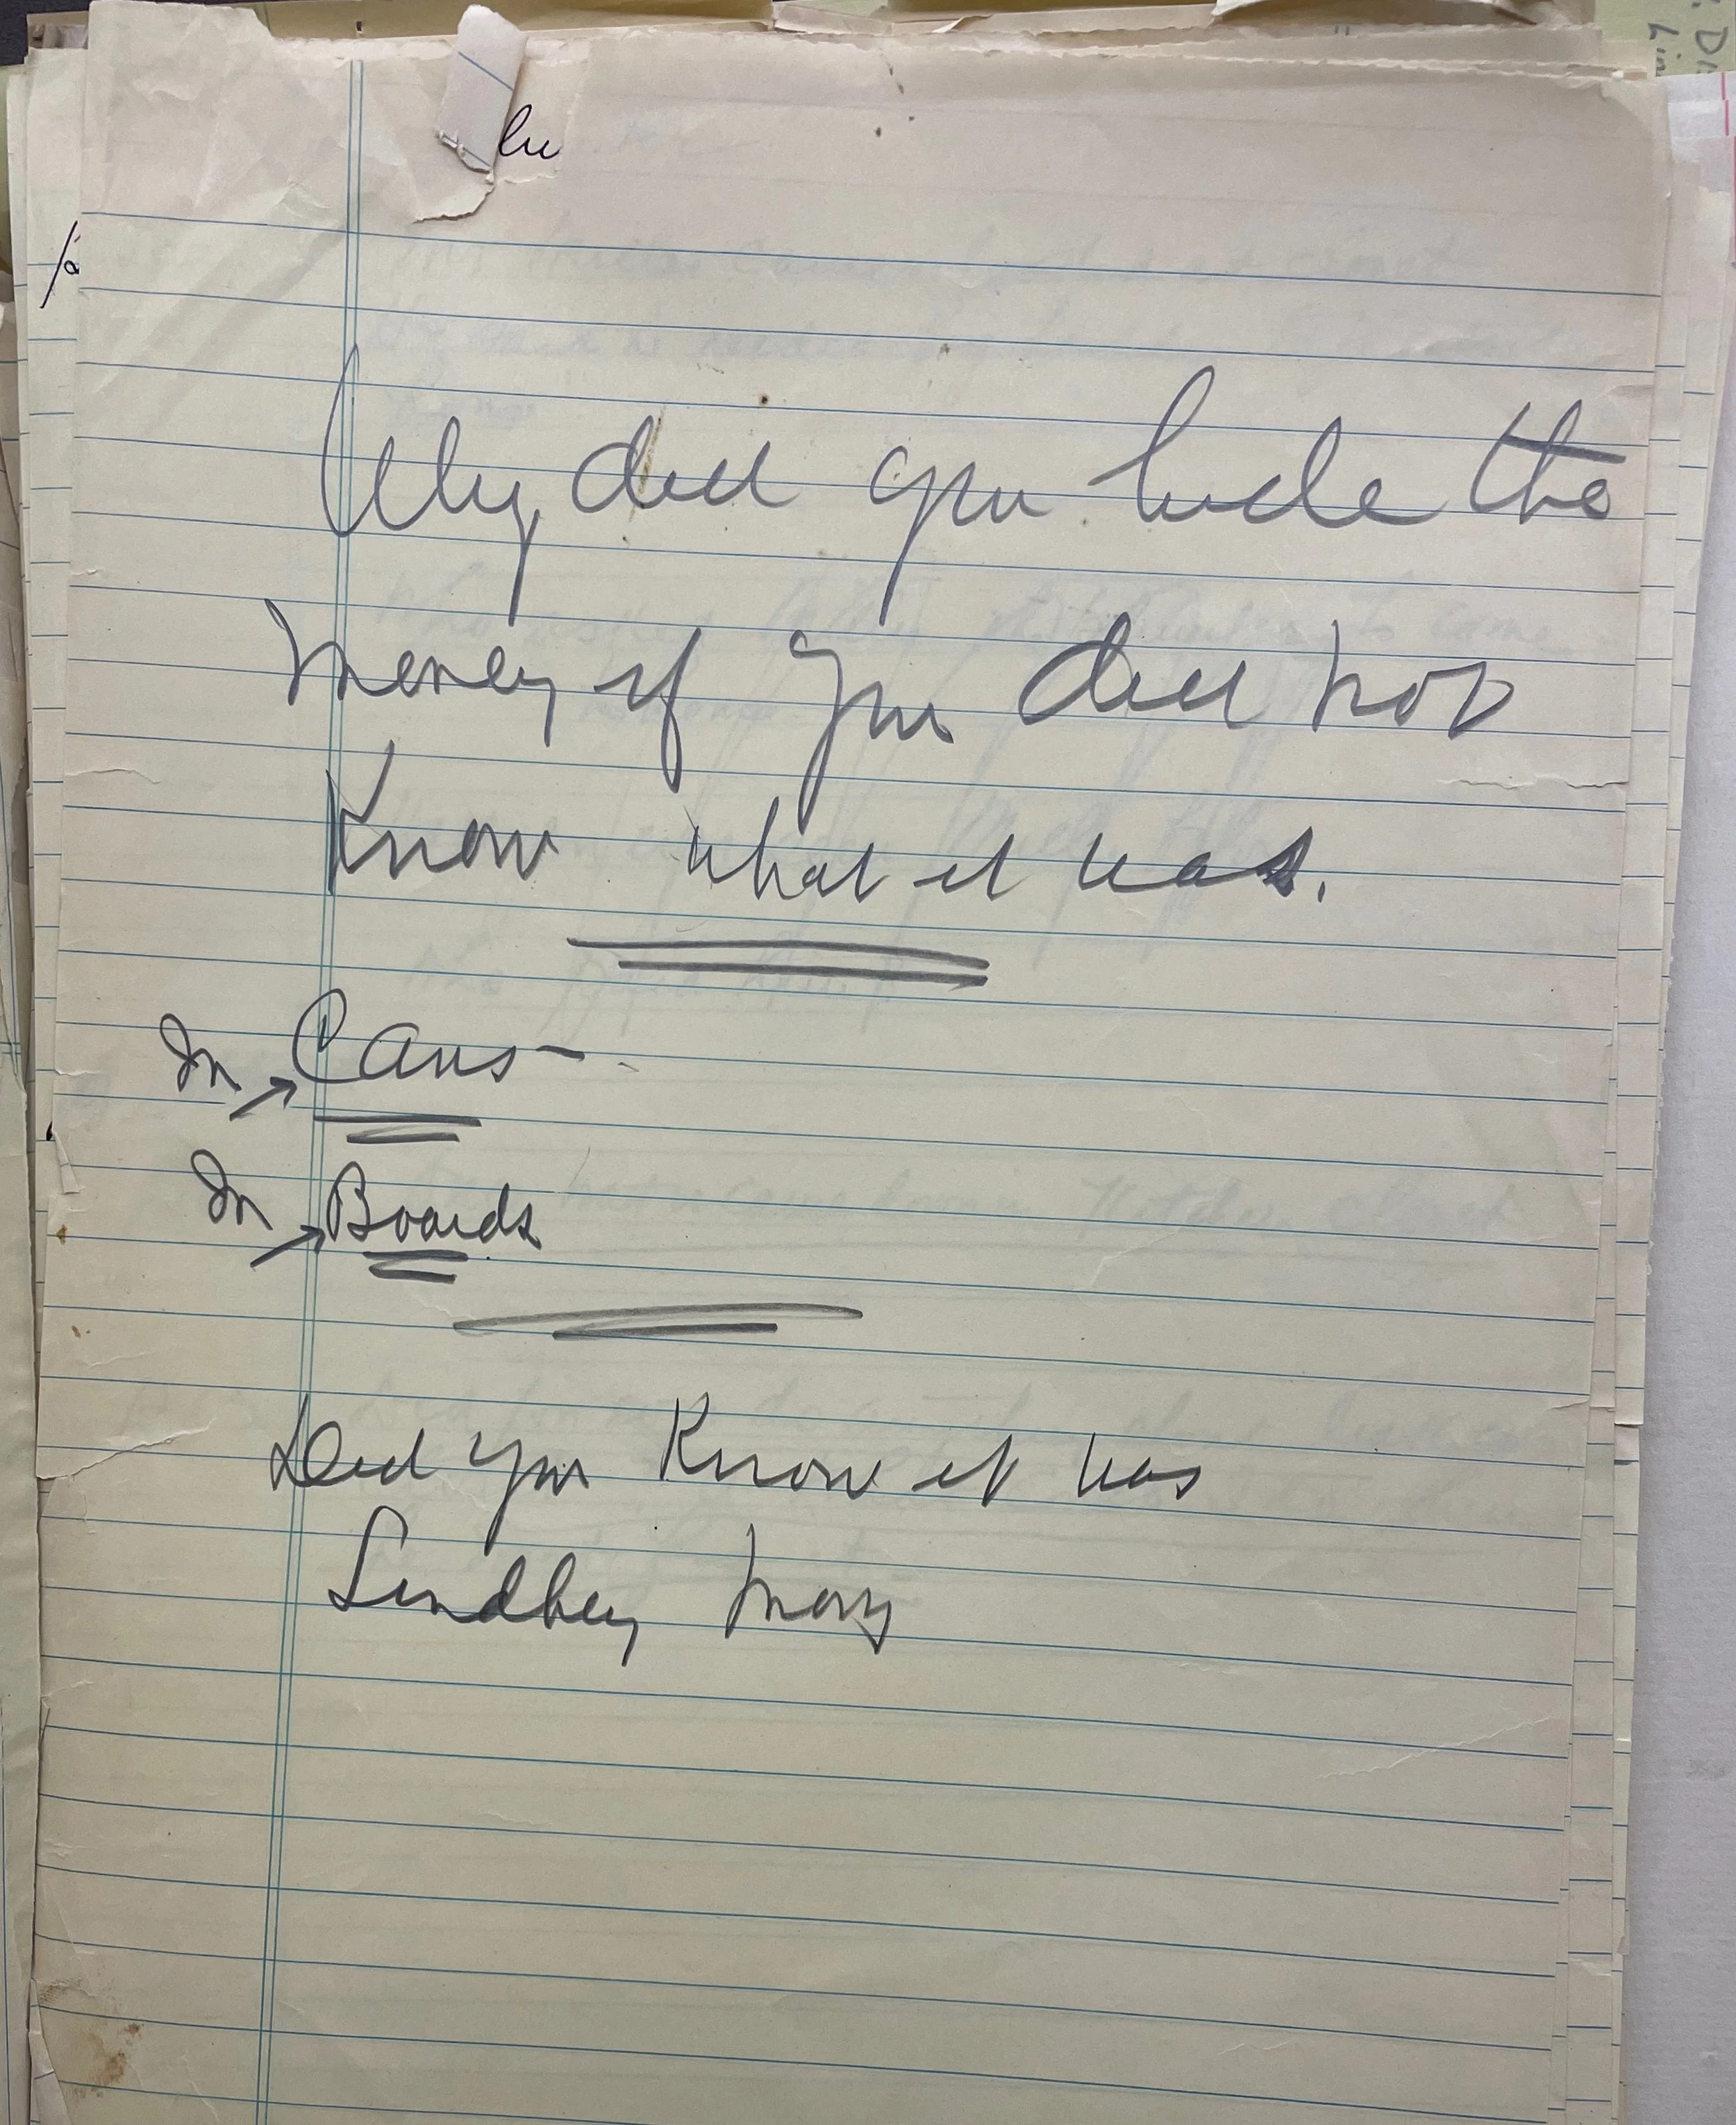 Why did you hide the
money if you did not
Know what it was.
In → Cans -
In → Boards
Did you Know it was
Lindbey mony